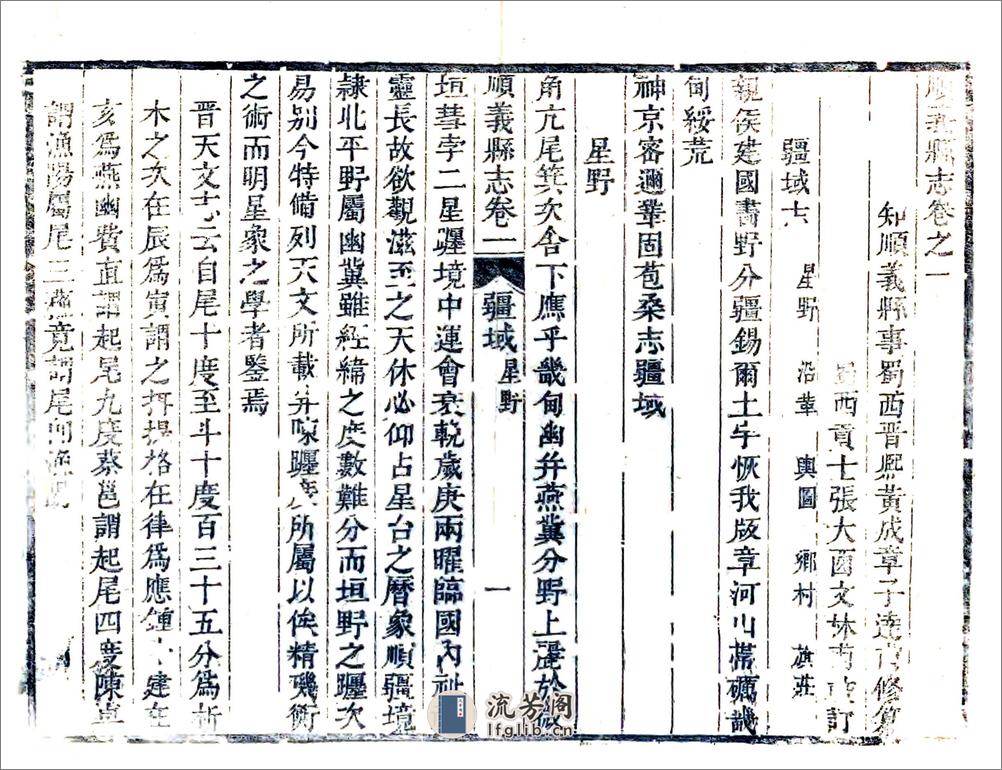 順義縣志卷之一
知順義縣事蜀西晉熙黃成章子達
西貢士張大酉文林
疆域志 星野 沿革 輿圖 鄉村 旗莊
親侯建國畫野分疆錫爾土宇恢我版章河山帶礪畿
甸綏荒
神京密邇鞏固苞桑志疆域
星野
角亢尾箕次舍下應乎畿甸幽并燕冀分野上麗於
順義縣志卷一 疆域 星野 一
垣彗孛二星躔境中運會衰輓歲庚兩曜臨國內祉
靈長故欲觀滋至之天休必仰占星台之曆象順疆境
隸北平野屬幽冀雖經緯之度數難分而垣野之躔次
易别今特備列天文所載并躔度所屬以俟精璣衡
之術而明星家之學者鑒焉
晉天文志云自尾十度至斗十度百三十五分為析
木之次在辰爲寅謂之攝格在律爲應鍾建在
亥爲燕幽費直謂起尾九度蔡邕謂起尾四度陳卓
謂漁陽屬尾三度謂尾
流芳阁
lfglib.cn